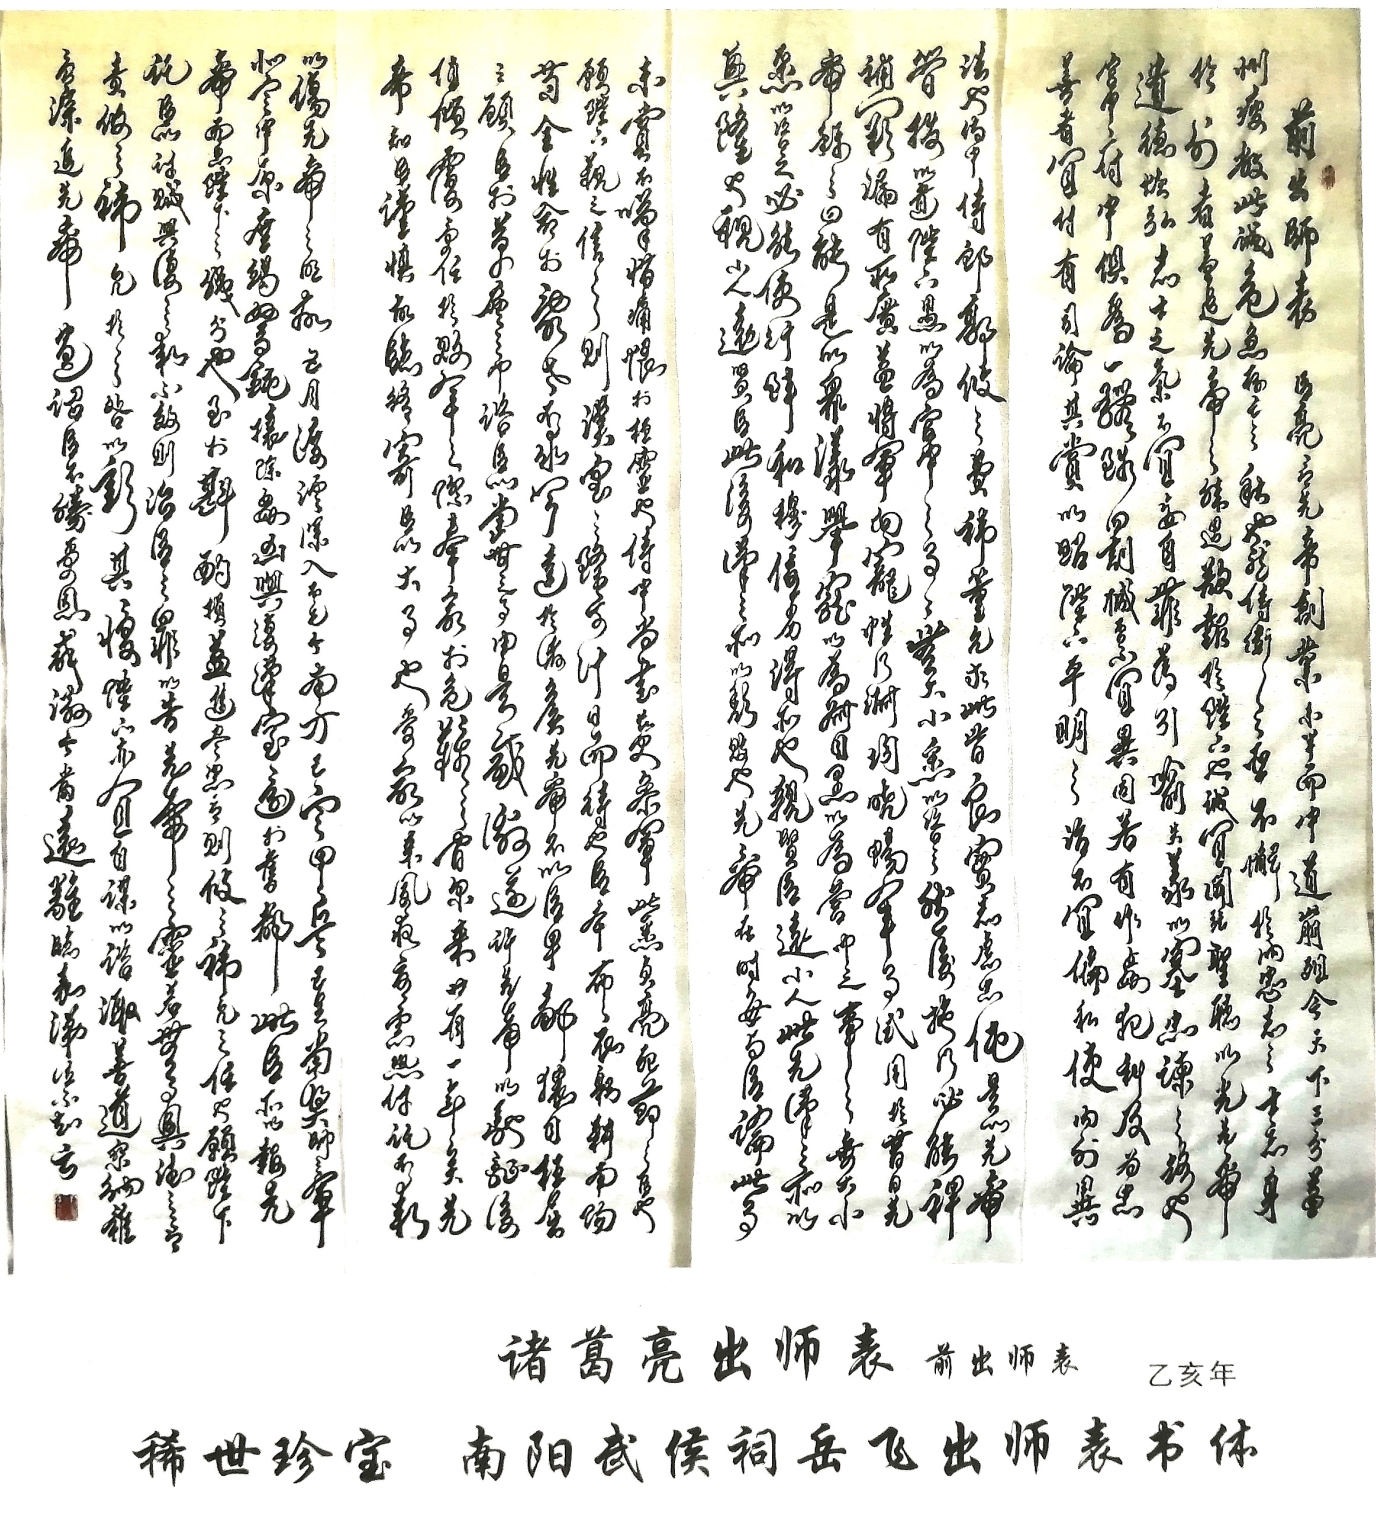 前出師表 臣亮言先帝創業未半而中道崩殂今天下三分益
州疲敝此誠危急存亡之秋也然侍衛之臣不懈於內忠志之士忘身
於外者蓋追先帝之殊遇欲報於陛下也誠宜開張聖聽以光先帝
遺德恢弘志士之氣不宜妄自菲薄引喻失義以塞忠諫之路也
宮中府中俱為一體陟罰臧否不宜異同若有作姦犯科及為忠
善者宜付有司論其賞以昭陛下平明之治不宜偏私使內外異
法也侍中侍郎郭攸之費禕董允等此皆良實志慮忠純是以先帝
簡拔以遺陛下愚以為宮中之事事無大小悉以咨之然後施行必能裨
補闕漏有所廣益將軍向寵性行淑均曉暢軍事試用於昔日先
帝稱之曰能是以眾議舉寵以為督愚以為營中之事事無大小
悉以咨之必能使行陣和穆優劣得所也親賢臣遠小人此先漢之所以
興隆也親小人遠賢臣此後漢之所以頹敗也先帝在時每與臣論此事
未嘗不嘆惜痛恨於桓靈也侍中尚書長史參軍此悉貞亮死節之臣也
願陛下親之信之則漢室之隆可計日而待也臣本布衣躬耕南陽
苟全性命於亂世不求聞達於諸侯先帝不以臣卑鄙猥自枉屈
三顧臣於草廬之中諮臣以當世之事由是感激遂許先帝以驅馳後
值傾覆受任於敗軍之際奉命於危難之間爾來廿有一年矣先
帝知臣謹慎故臨終寄臣以大事也受命以來夙夜憂慮恐付託不效
以傷先帝之明故五月渡瀘深入不毛今南方已定甲兵已足當獎帥三軍
北定中原庶竭駑鈍攘除姦凶興復漢室還於舊都此臣所以報先
帝而忠陛下之職分也至於斟酌損益進盡忠言則攸之禕允之任也願陛下
託臣以討賊興復之效不效則治臣之罪以告先帝之靈若無興德之言
責攸之禕允等之咎以彰其慢陛下亦宜自謀以諮諏善道察納雅
言深追先帝遺詔臣不勝受恩感激今當遠離臨表涕泣不知云
诸葛亮出师表 前出师表 乙亥年
稀世珍宝 南阳武侯祠岳飞出师表书体